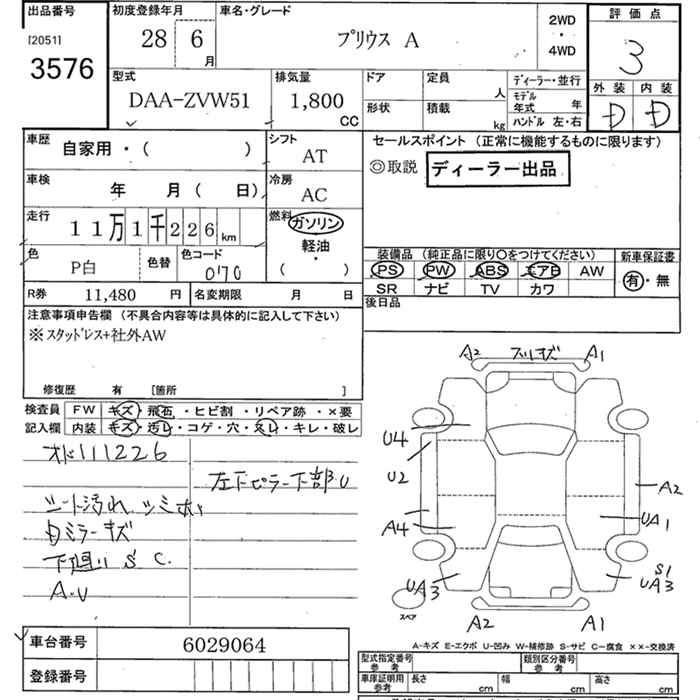 出品番号
[2051]
3576
初度登録年月
28 6 月
車名・グレード
プリウス A
2WD
・
4WD
評価点
3
外装 内装
D D
型式
DAA-ZVW51
排気量
1,800 CC
ドア
定員 人
形状
積載 kg
ディーラー・並行
モデル年式 年
ハンドル 左・右
車歴
自家用・( )
シフト
AT
車検
年 月 ( 日)
冷房
AC
走行
11万1千226km
燃料
ガソリン
軽油
・
( )
色
P白
色替
色コード
070
R券 11,480 円
名変期限 月 日
セールスポイント (正常に機能するものに限ります)
◎取説 ディーラー出品
装備品 (純正品に限り○をつけてください)
PS PW ABS エアB AW
SR ナビ TV カワ
新車保証書
有・無
後日品
注意事項申告欄 (不具合内容等は具体的に記入して下さい)
※スタッドレス+社外AW
修復歴 有 [箇所 ]
検査員記入欄
FW キズ・飛石・ヒビ割・リペア跡・×要
内装 キズ・汚レ・コゲ・穴・スレ・キレ・破レ
オド111226
左下ピラー下部U
シート汚れ
ミラーキズ
下廻り S C.
A.U
A2 スリキズ A1
U4
U2
A4
UA3
A2
UA1
S1
UA3
スペア
A2 A1
A-キズ E-エクボ U-凹み W-補修跡 S-サビ C-腐食 ××-交換済
車台番号 6029064
登録番号
型式指定番号 参考
類別区分番号 参考
車庫証明用 参考
長さ cm
幅 cm
高さ cm